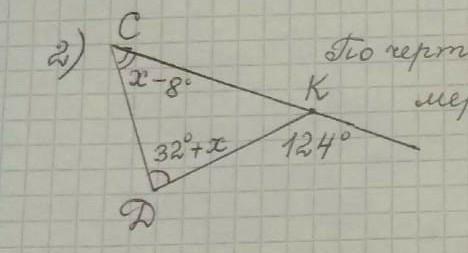 2)
C
По черт
x-8°
K
мер
32°+x
124°
D